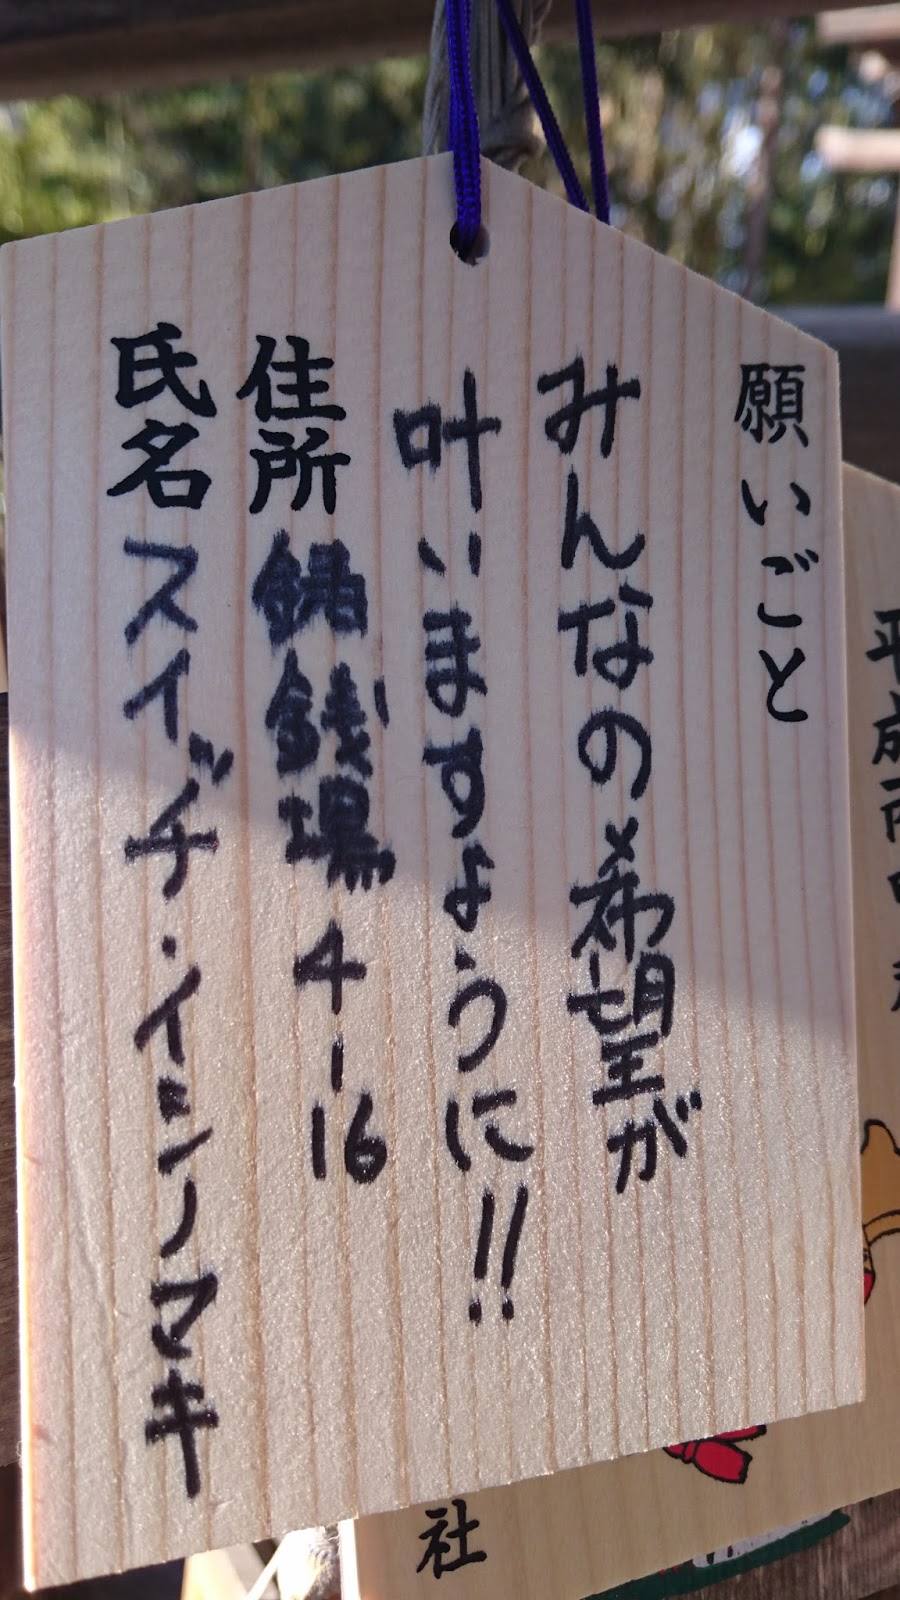 願いごと
みんなの希望が
叶いますように!!
住所 銅銭場4-16
氏名 スイッチ・イシノマキ
平成
社